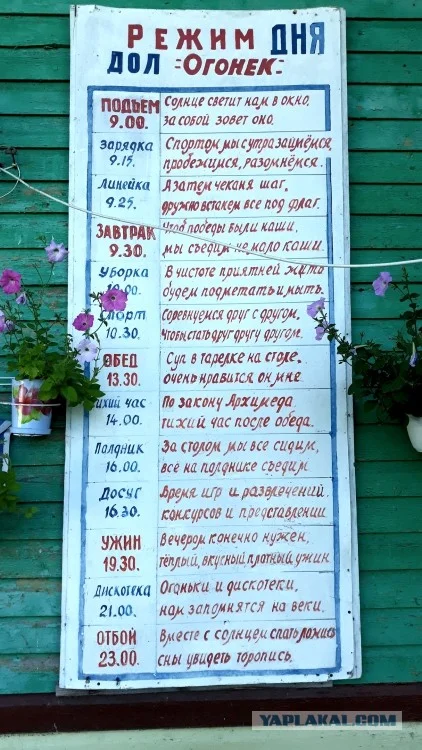 РЕЖИМ ДНЯ
ДОЛ "Огонек"
ПОДЪЕМ
9.00.
Солнце светит нам в окно,
за собой зовет оно.
Зарядка
9.15.
Спортом мы с утра займёмся,
пробежимся, разомнёмся.
Линейка
9.25.
А затем чеканя шаг,
дружно встанем все под флаг.
ЗАВТРАК
9.30.
Чтоб победы были наши,
мы съедим не мало каши
Уборка
10.00.
В чистоте приятней жить
будем подметать и мыть.
Спорт
10.30.
Соревнуемся друг с другом,
чтобы стать друг другу другом.
ОБЕД
13.30.
Суп в тарелке на столе,
очень нравится он мне
Тихий час
14.00.
По закону Архимеда
тихий час после обеда.
Полдник
16.00.
За столом мы все сидим,
всё на полднике съедим
Досуг
16.30.
Время игр и развлечений,
конкурсов и представлений
УЖИН
19.30.
Вечером конечно нужен,
тёплый, вкусный плотный ужин
Дискотека
21.00.
Огоньки и дискотеки,
нам запомнятся на веки.
ОТБОЙ
23.00.
Вместе с солнцем спать ложись
сны увидеть торопись.
YAPLAKAL.COM